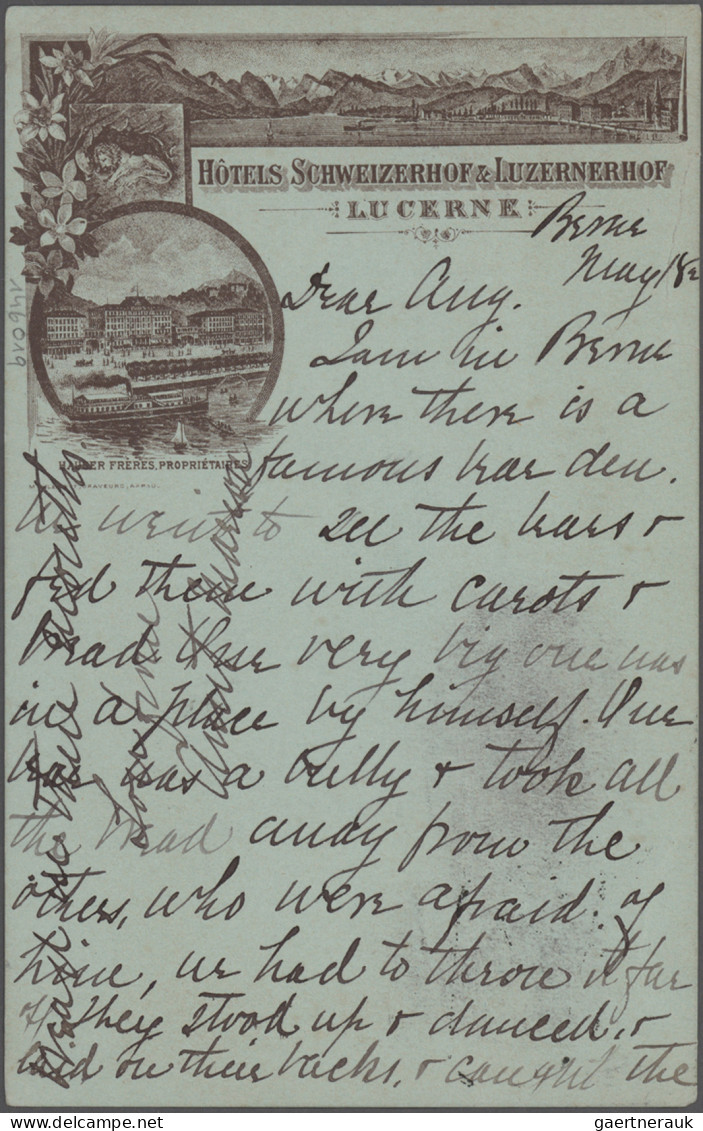 HÔTELS SCHWEIZERHOF & LUZERNERHOF
LUCERNE
Berne
May 18
Dear Aug.
I am in Berne
where there is a
HAUSER FRÈRES, PROPRIÉTAIRES
famous bear den.
We went to see the bears &
fed them with carots &
bread. One very big one was
in a place by himself. One
bear was a bully & took all
the bread away from the
others, who were afraid of
him, we had to throw it far
off. They stood up & danced, &
laid on their backs, & caught the
their mouths
146019
gaertnerauk